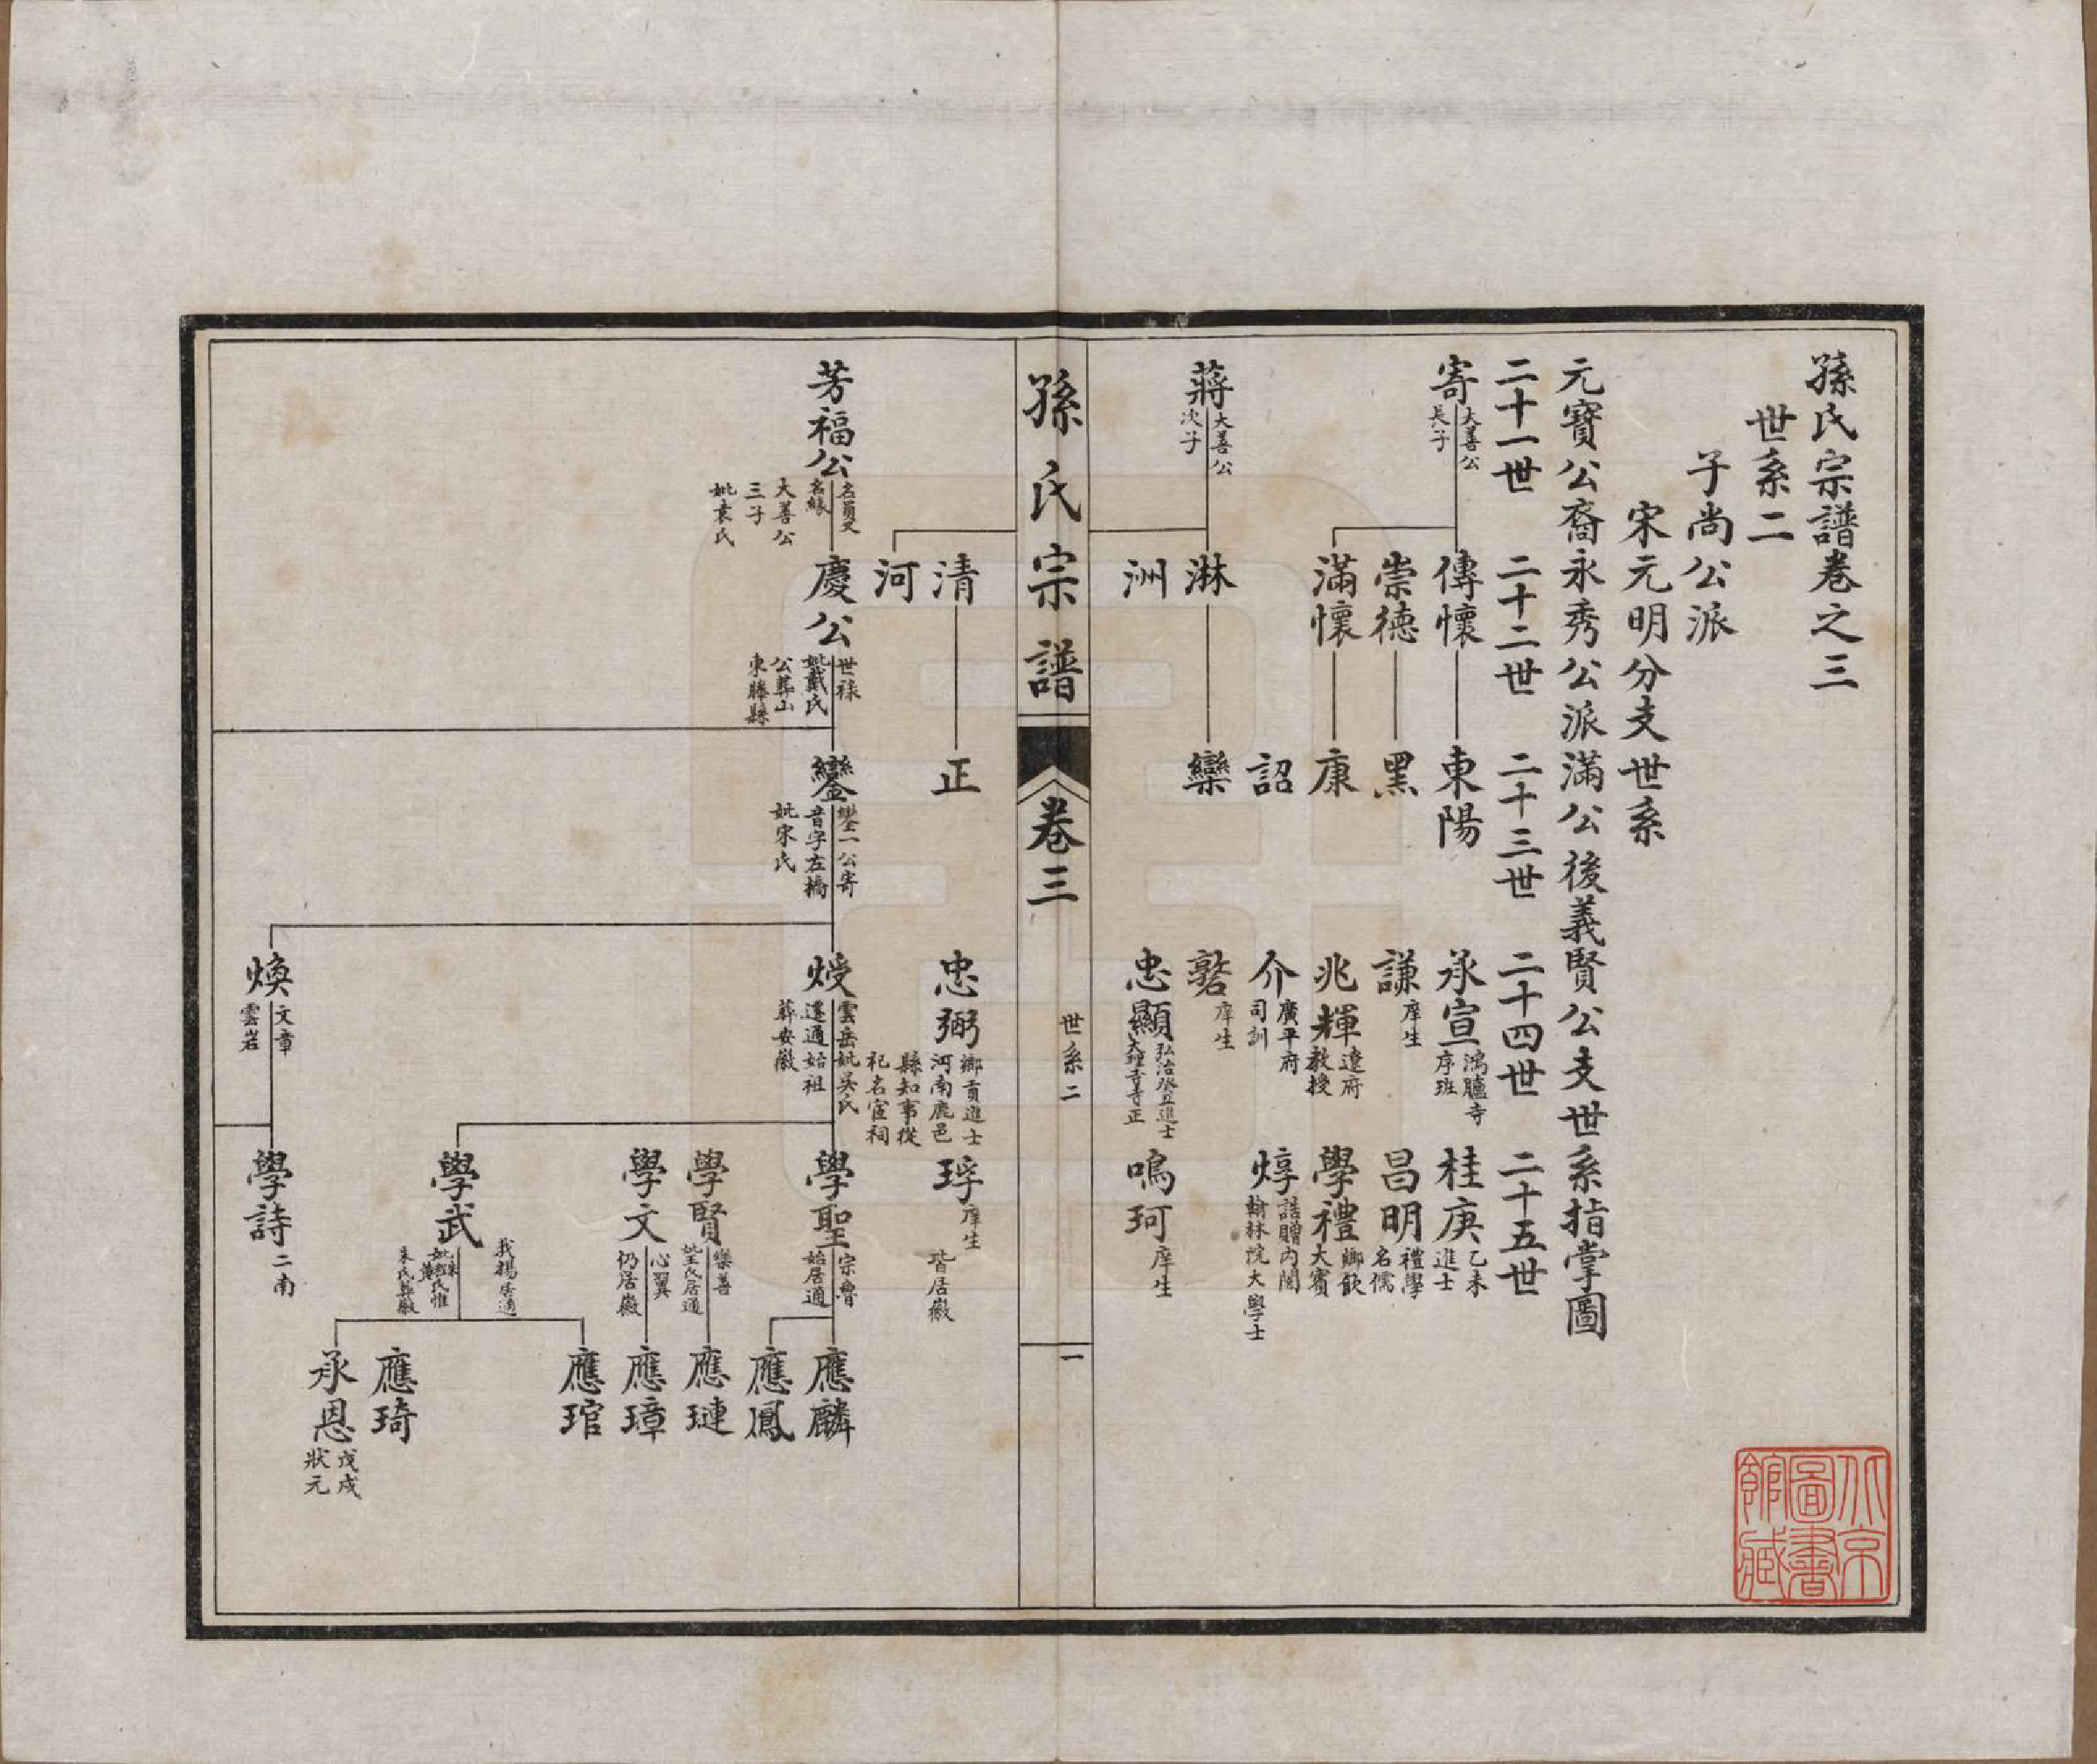 孫氏宗譜卷之三
世系二
子尚公派
宋元明分支世系
元寶公裔永秀公派滿公後義賢公支世系指掌圖
二十一世 二十二世 二十三世 二十四世 二十五世
寄 大善公 長子 傳懷 東陽 承宣 鴻臚寺 序班 桂庚 乙未 進士
崇德 黑 謙 庠生 昌明 禮學 名儒
滿懷 康 兆輝 遼府 教授 學禮 鄉飲 大賓
詔 介 廣平府 司訓 焞 誥贈內閣 翰林院大學士
蔣 大善公 次子 淋 欒 庠生
洲 忠顯 弘治癸丑進士 大理寺寺正 鳴珂 庠生
孫氏宗譜 卷三 世系二 一
清 正 忠弼 鄉貢進士 河南鹿邑 縣知事從 祀名宦祠 琈 庠生 皆居徽
河
芳福公 名員又 名緣 大善公 三子 妣袁氏 慶公 世祿 妣戴氏 公葬山 東滕縣 鑾 鑾一公寄 音字左橋 妣宋氏 㷟 雲岳妣吳氏 遷通始祖 葬安徽 學聖 宗魯 始居通 應麟
應鳳
學賢 樂善 妣王氏居通 應璉
學文 心翼 仍居徽 應璋
應琯
學武 我揚居通 朱氏葬徽
應琦
承恩 戊戌 狀元
煥 文章 雲岩 學詩 二南
北京圖書館藏